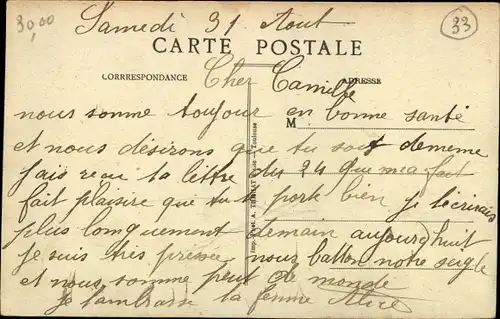 30,00
33
Samedi 31 Aout
CARTE POSTALE
CORRRESPONDANCE
ADRESSE
Cher Camille
nous somme toujour en bonne santé
M.
et nous désirons que tu soit de meme
jais recu ta lettre du 24 que mea fait
fait plaisire que tu te porte bien je técrirais
plus longuement demain aujourghuit
je suis très pressée nous batton notre seigle
et nous somme peut de monde
je tambrasse ta femme Alice
Toulouse